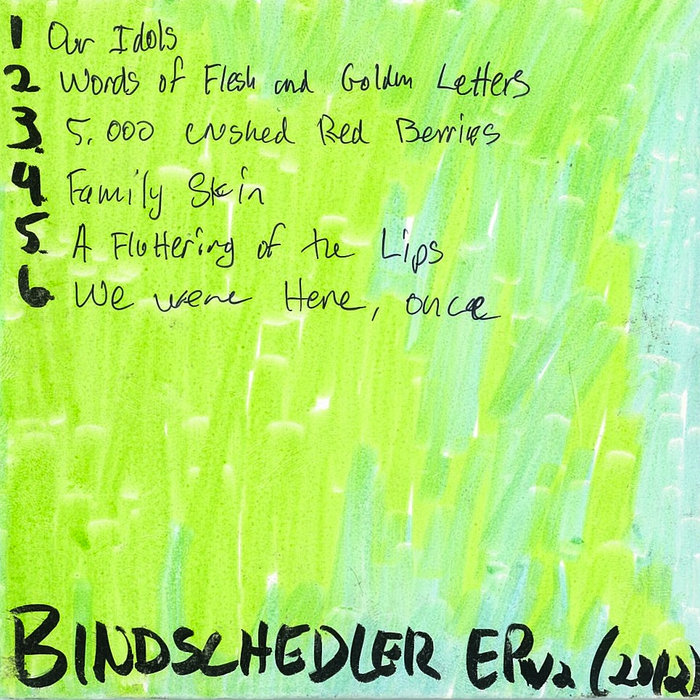 1 Our Idols
2 Words of Flesh and Golden Letters
3. 5,000 crushed Red Berries
4 Family Skin
5. A Fluttering of the Lips
6 We were Here, once
BINDSCHEDLER EP v2 (2012)